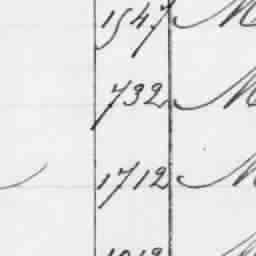 1547 M
732 M
1712 M